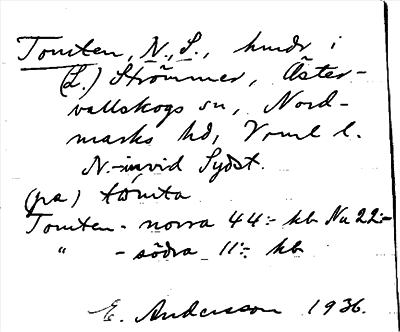 Tomten, N., S., hmdr i
(L.) Strömmer, Öster-
vallskogs sn, Nord-
marks hd, Vrml l.
N. invid Sydst.
(på) tòmta
Tomten - norra 44:- kb Nu 22:-
" - södra 11:- kb
E. Andersson 1936.